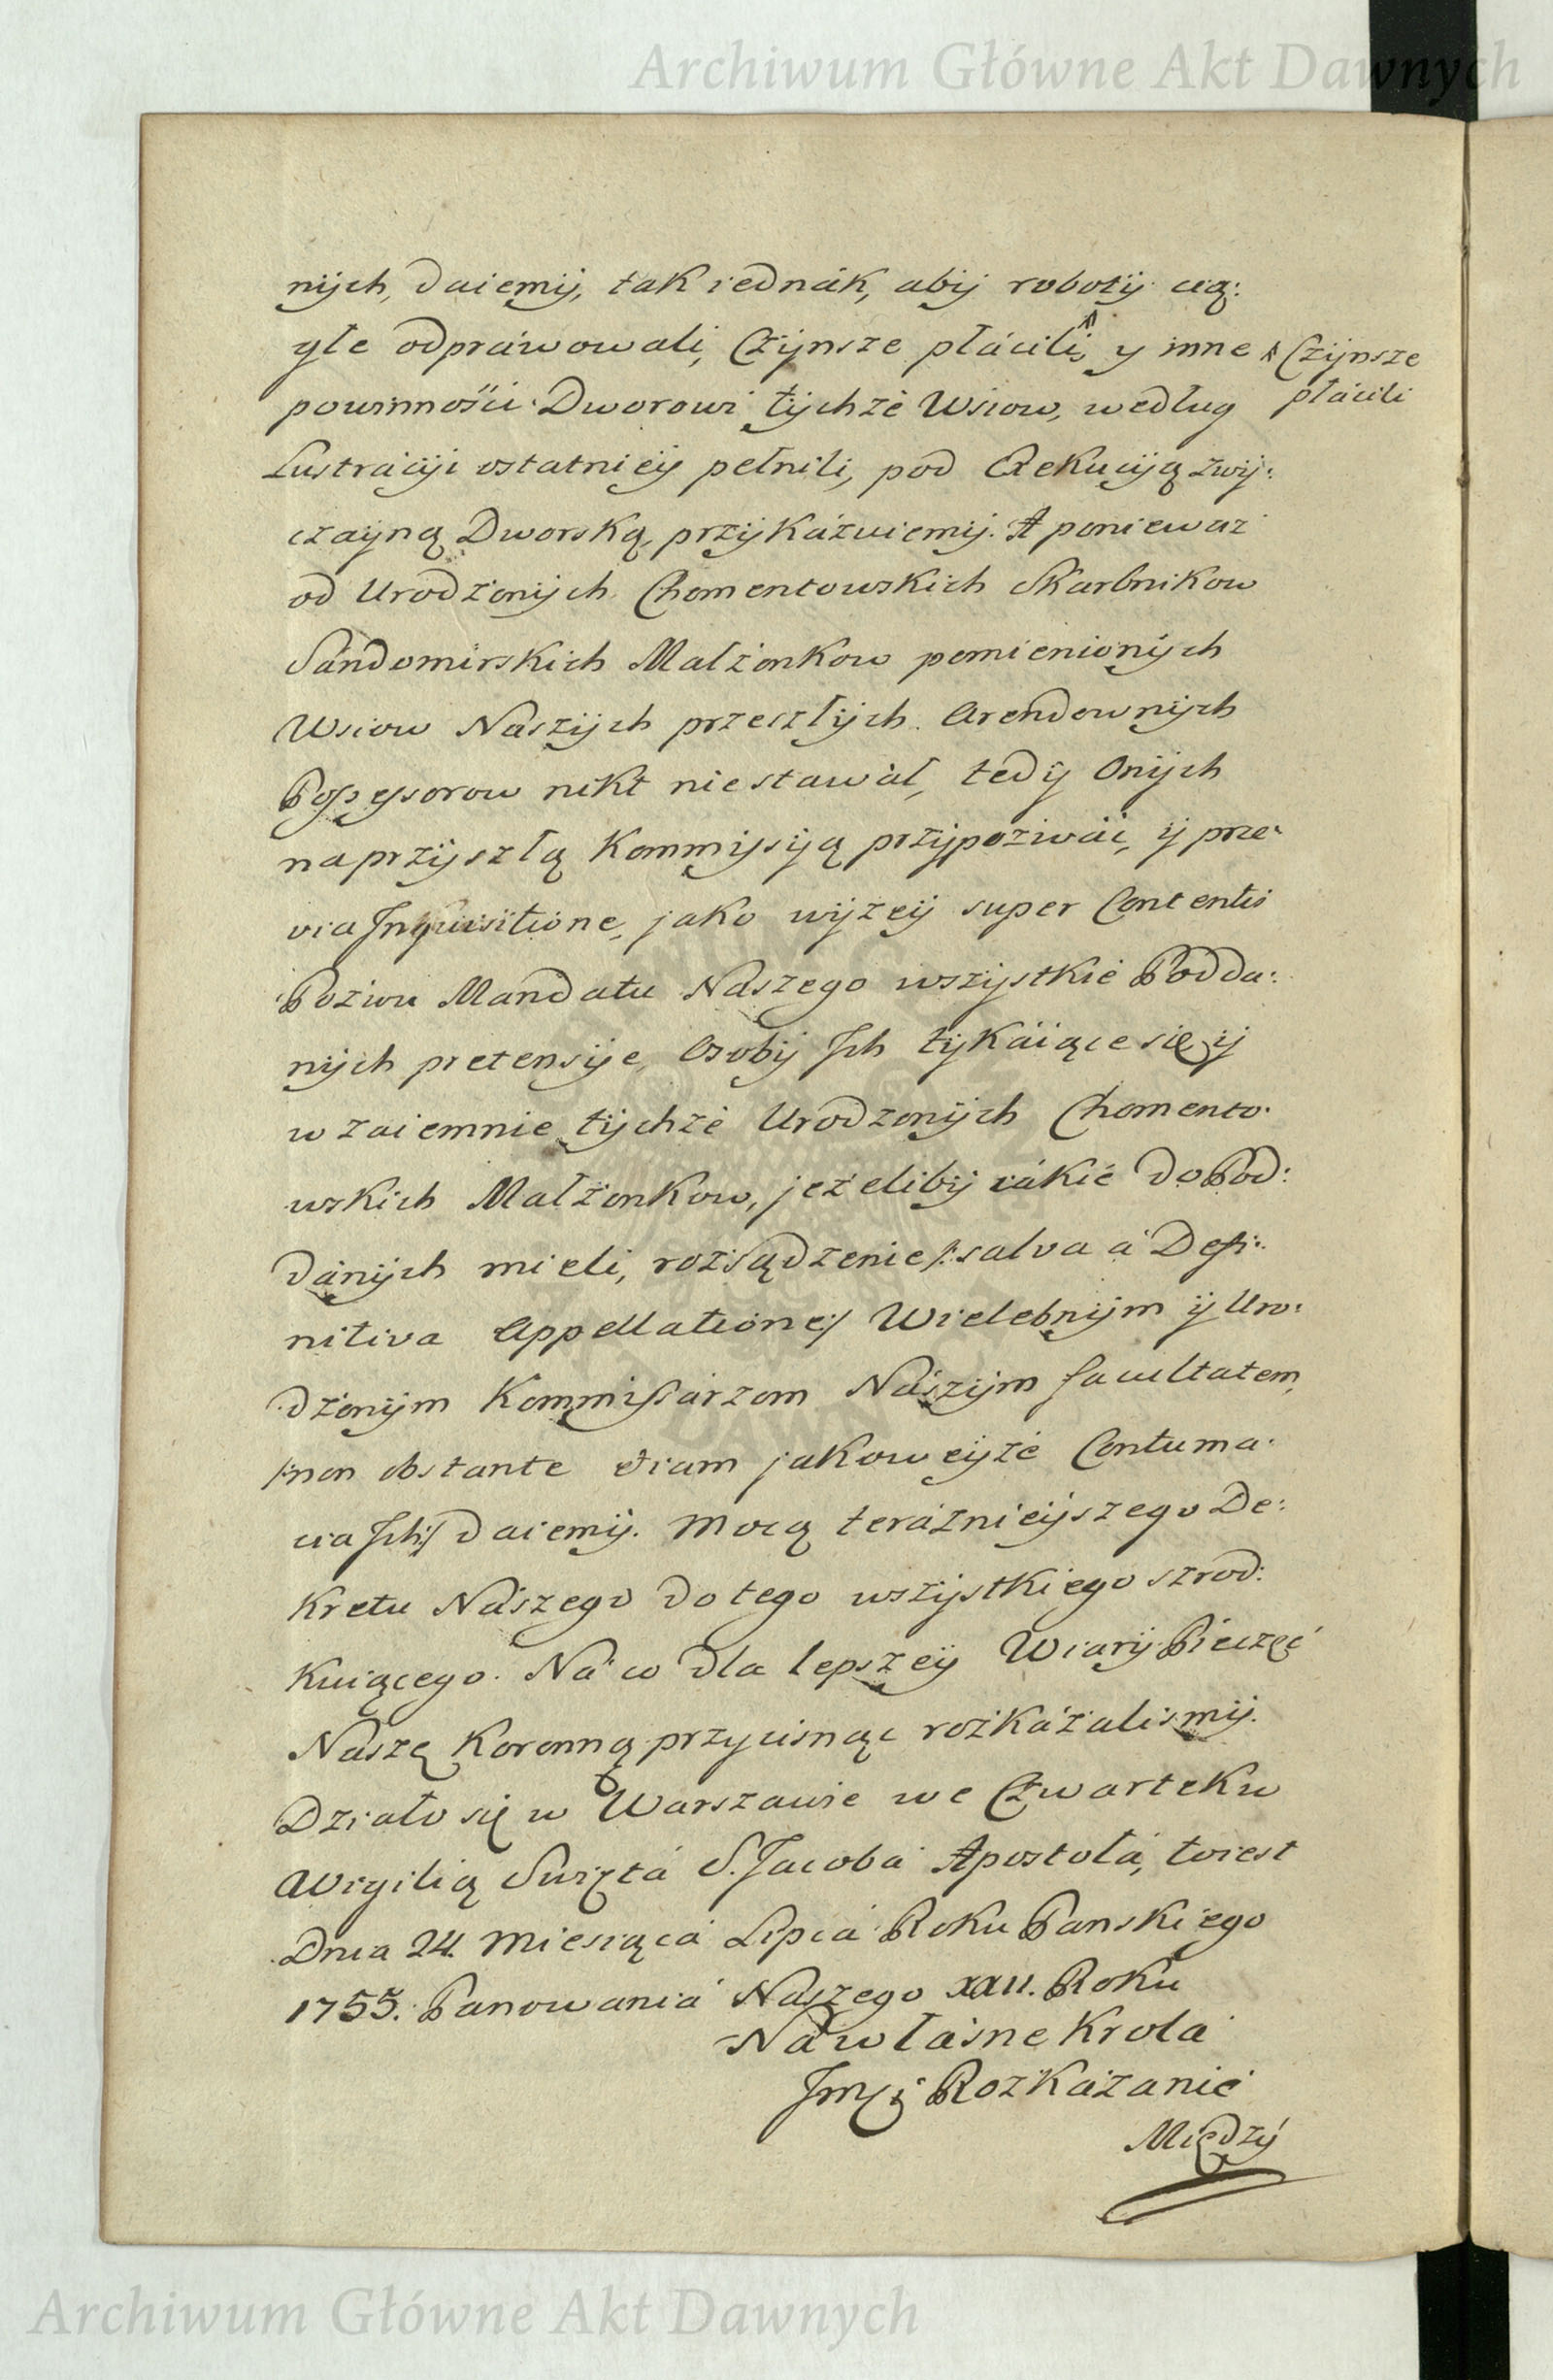 Archiwum Główne Akt Dawnych
nijch, daiemij, tak iednák, abij robotij cią:
głe odpráwowali, Czijnsze płácili, y inne
^ Czijnsze
płácili
powinnośći Dworowi tijchże Wsiow, według
Lustrácyi ostatnieij pełnili, pod Exekucyią zwij:
czayną Dworską, przijkázuiemij. A ponieważ
od Urodzonijch Chomentowskich Skarbnikow
Sándomirskich Małżonkow pomienionijch
Wsiow Nászijch przeszłijch Arendownijch
Possessorow nikt nie stawał, tedij Onijch
na przijszłą Kommissiją przijpozwáć, ij prae:
via Inquisitione, jako wijżeij super Contentis
Pozwu Mandatu Naszego wszijstkie Podda:
nijch pretensije, Osobij Ich tijkáiące się ij
wzaiemnie tijchże Urodzonijch Chomento:
wskich Małżonkow, jeżelibij iákie do Pod:
dánijch mieli, rozsądzenie /:salva a Defi:
nitiva Appellatione:/ Wielebnijm ij Uro:
dzonijm Kommissárzom Nászijm facultatem,
/:non obstante etiam jakoweijże Contuma:
cia Ich:/ daiemij. Mocą teráznieijszego De:
kretu Nászego do tego wszijstkiego szrod:
kuiącego. Ná co dla lepszeij Wiarij Pieczęć
Naszę Koronną przycisnąć rozkázalismij.
Działo się w Warszawie we Czwartek w
Wigilią Swiętá S. Jacobá Apostołá, to iest
Dnia 24. Miesiącá Lipcá Roku Panskiego
1755. Panowaniá Naszego XXII. Roku
Ná włásne Krolá
Jmci Rozkázanié
Międzÿ
Archiwum Główne Akt Dawnych